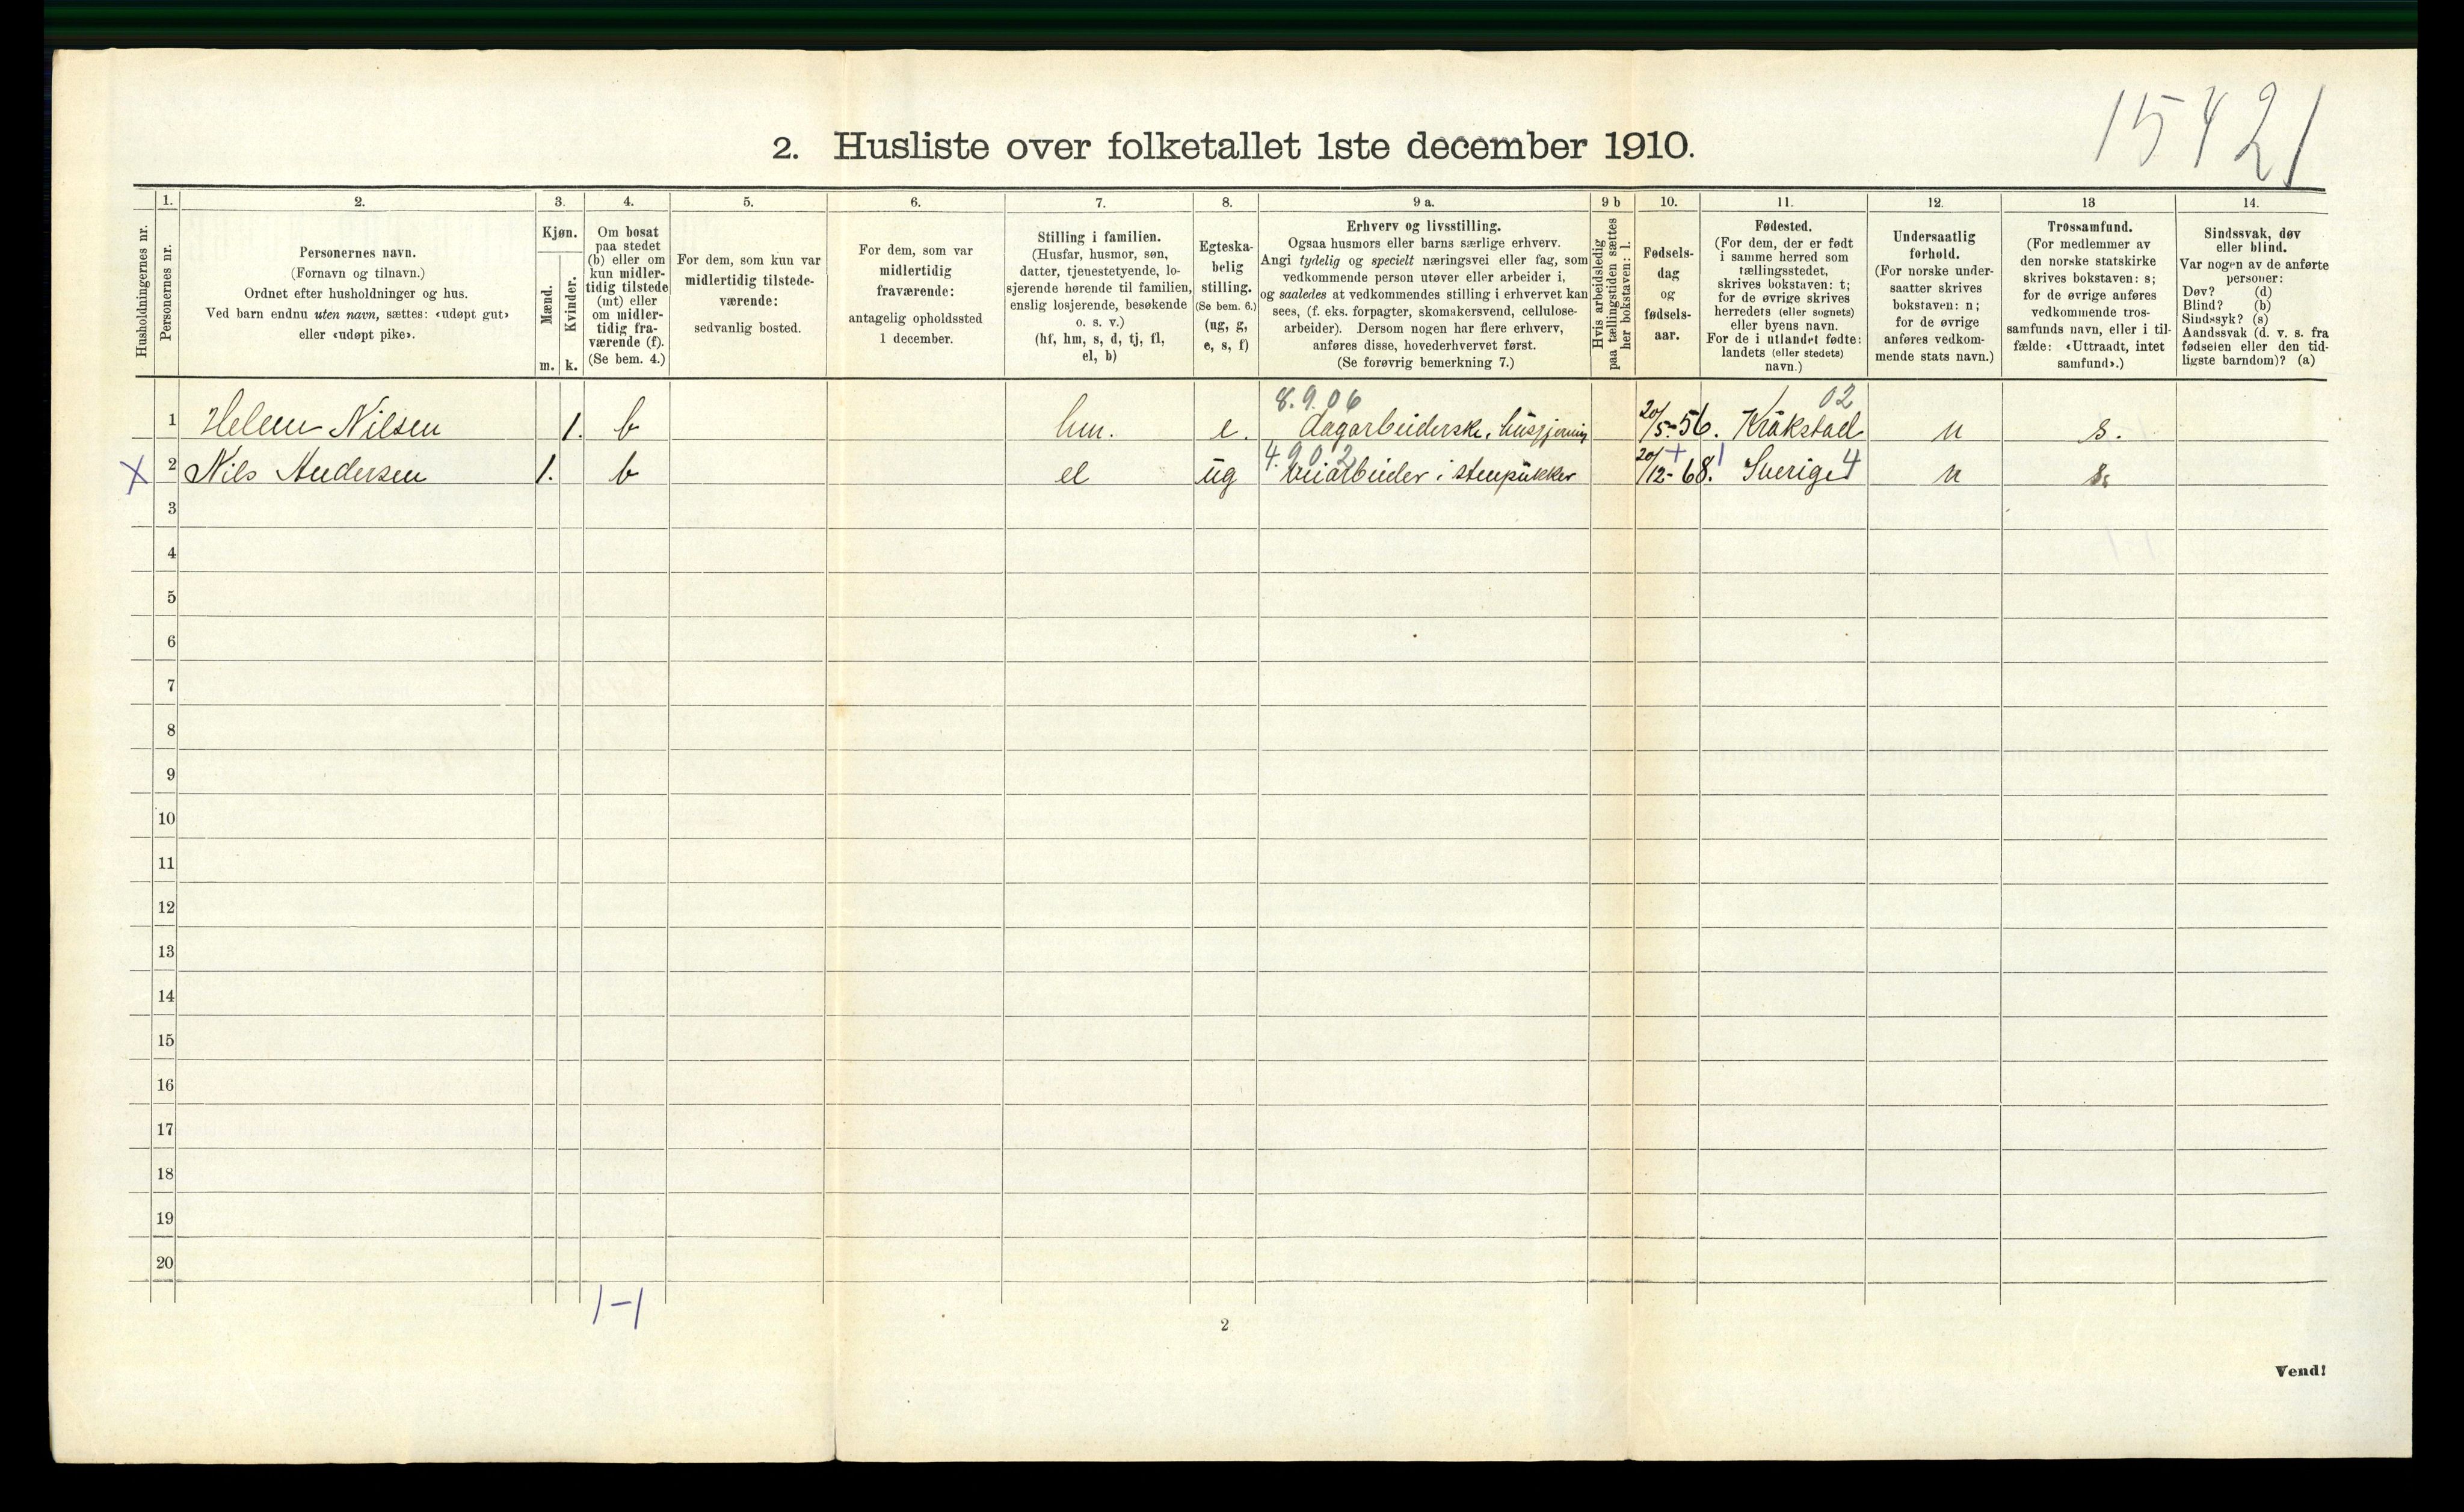 15421
2. Husliste over folketallet 1ste december 1910.
Husholdningernes nr.
1.
Personernes nr.
2.
Personernes navn.
(Fornavn og tilnavn.)
Ordnet efter husholdninger og hus.
Ved barn endnu uten navn, sættes: «udøpt gut»
eller «udøpt pike».
3.
Kjøn.
Mænd.
Kvinder.
m.
k.
4.
Om bosat
paa stedet
(b) eller om
kun midler-
tidig tilstede
(mt) eller
om midler-
tidig fra-
værende (f).
(Se bem. 4.)
5.
For dem, som kun var
midlertidig tilstede-
værende:
sedvanlig bosted.
6.
For dem, som var
midlertidig
fraværende:
antagelig opholdssted
1 december.
7.
Stilling i familien.
(Husfar, husmor, søn,
datter, tjenestetyende, lo-
sjerende hørende til familien,
enslig losjerende, besøkende
o. s. v.)
(hf, hm, s, d, tj, fl,
el, b)
8.
Egteska-
belig
stilling.
(Se bem. 6.)
(ug, g,
e, s, f)
9 a.
Erhverv og livsstilling.
Ogsaa husmors eller barns særlige erhverv.
Angi tydelig og specielt næringsvei eller fag, som
vedkommende person utøver eller arbeider i,
og saaledes at vedkommendes stilling i erhvervet kan
sees, (f. eks. forpagter, skomakersvend, cellulose-
arbeider). Dersom nogen har flere erhverv,
anføres disse, hovederhvervet først.
(Se forøvrig bemerkning 7.)
9 b
Hvis arbeidsledig
paa tællingstiden sættes
her bokstaven: l.
10.
Fødsels-
dag
og
fødsels-
aar.
11.
Fødested.
(For dem, der er født
i samme herred som
tællingsstedet,
skrives bokstaven: t;
for de øvrige skrives
herredets (eller sognets)
eller byens navn.
For de i utlandet fødte:
landets (eller stedets)
navn.)
12.
Undersaatlig
forhold.
(For norske under-
saatter skrives
bokstaven: n;
for de øvrige
anføres vedkom-
mende stats navn.)
13
Trossamfund.
(For medlemmer av
den norske statskirke
skrives bokstaven: s;
for de øvrige anføres
vedkommende tros-
samfunds navn, eller i til-
fælde: «Uttraadt, intet
samfund».)
14.
Sindssvak, døv
eller blind.
Var nogen av de anførte
personer:
Døv? (d)
Blind? (b)
Sindssyk? (s)
Aandssvak (d. v. s. fra
fødselen eller den tid-
ligste barndom)? (a)
8.9.06 02
1 Helene Nilsen 1. b hm. e. dagarbeiderske, husgjerning 20/5-56. Kråkstad n s.
4.902 + 1 4
X 2 Nils Andersen 1. b el ug veiarbeider i stenpukker 20/12-68. Sverige n s.
3
4
5
6
7
8
9
10
11
12
13
14
15
16
17
18
19
20
1-1
2
Vend!